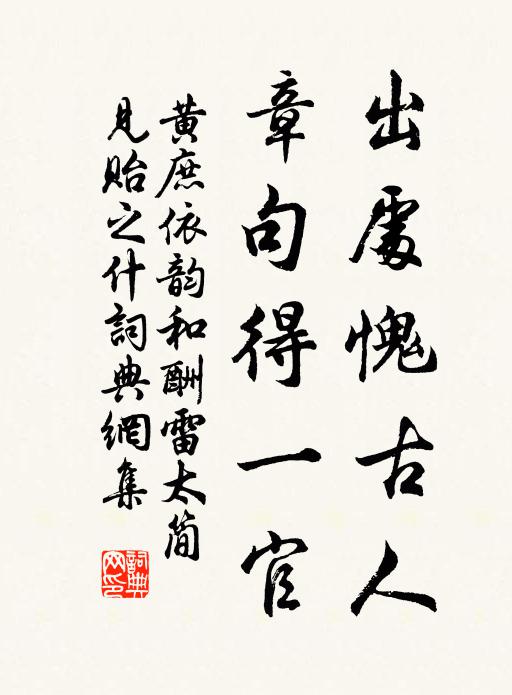 出處愧古人
章句得一官
黃庶依韵和酬雷太简
見貽之什詞典網集
詞典
网印